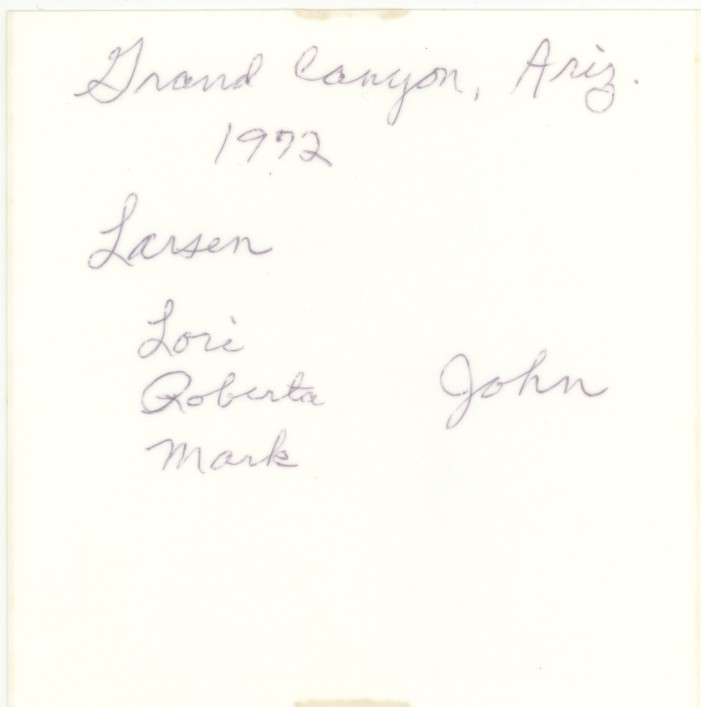 Grand Canyon, Ariz.
1972
Larsen
Lori
Roberta John
Mark